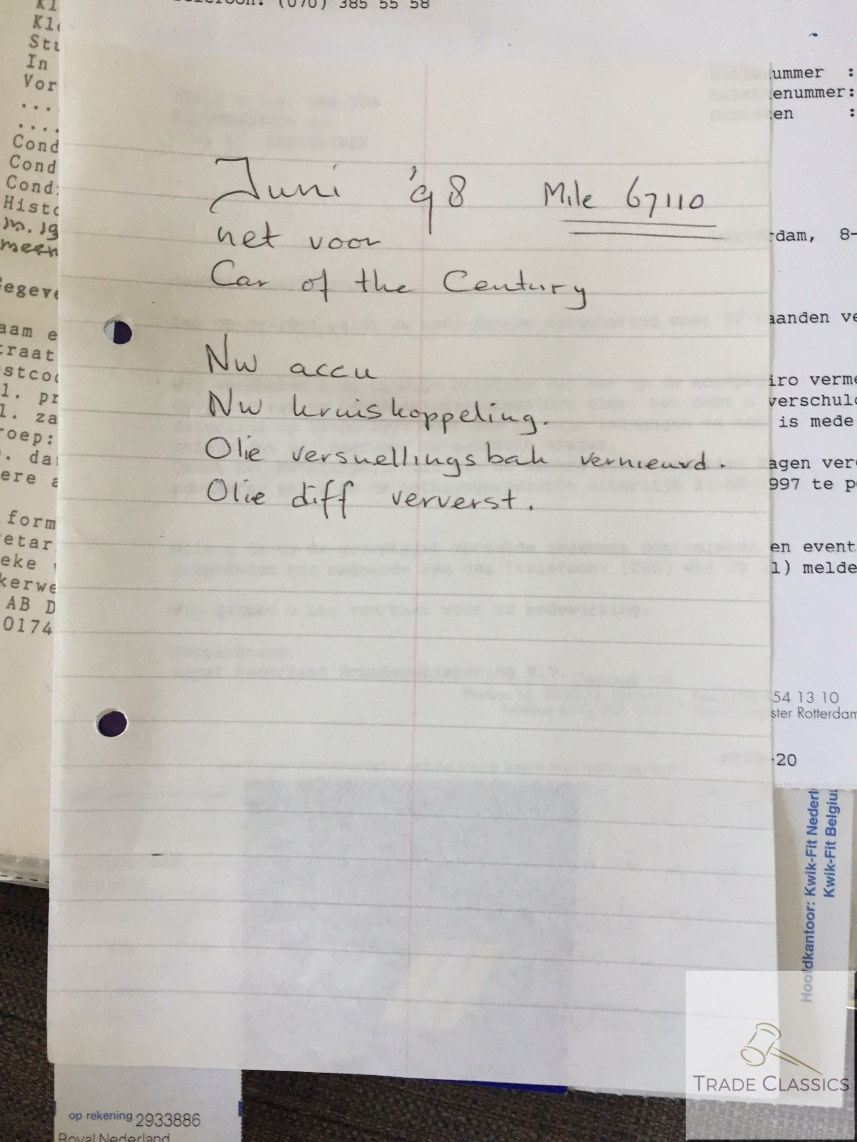 (070) 385 55 58
Kl
Kl
St
In
Vor
...
....
Cond
Cond
Cond:
Histo
m. 19
meen
egeve
aam e
traat
stcod
l. pr
l. za
roep:
. da
ere a
form
etar
eke
kerwe
AB D
0174
Juni '98 Mile 67110
net voor
Car of the Century
Nw accu
Nw kruiskoppeling.
Olie versnellingsbak vernieuwd.
Olie diff ververst.
ummer :
enummer:
en :
dam, 8-
aanden ve
iro verme
verschuld
is mede
agen ver
997 te p
en event
1) melde
54 13 10
ster Rotterdam
-20
Hoofdkantoor: Kwik-Fit Nederl
Kwik-Fit Belgiu
TRADE CLASSICS
op rekening 2933886
Royal Nederland